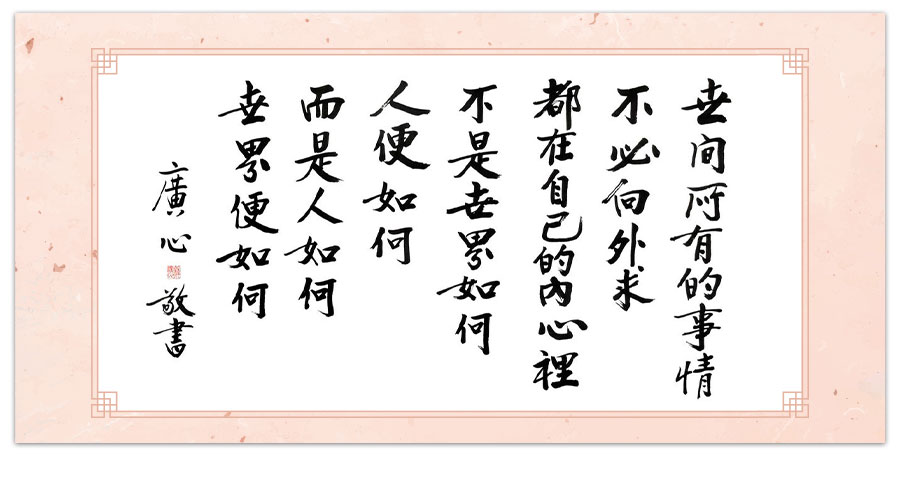 世间所有的事情
不必向外求
都在自己的內心裡
不是世界如何
人便如何
而是人如何
世界便如何
廣心
敬書